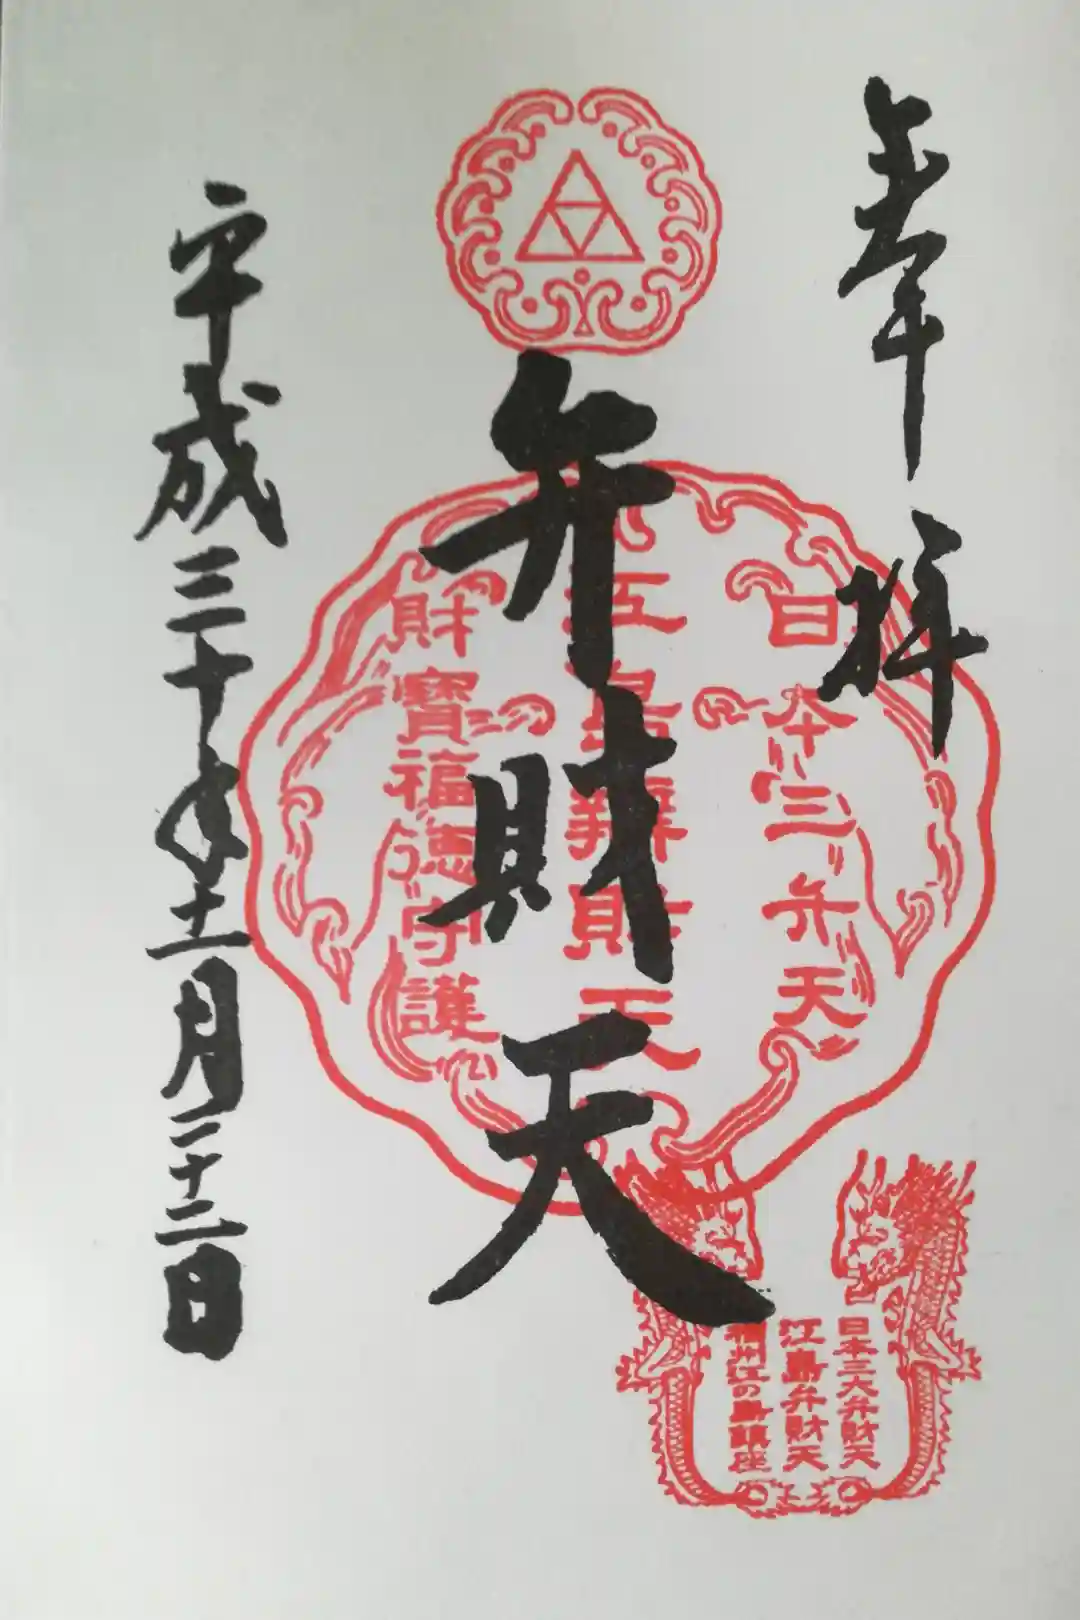 奉拝
日本三弁天
江島辨財天
財寶福徳守護
弁財天
平成三十年十一月二十二日
日本三大弁財天
江島弁財天
相州江の島鎮座